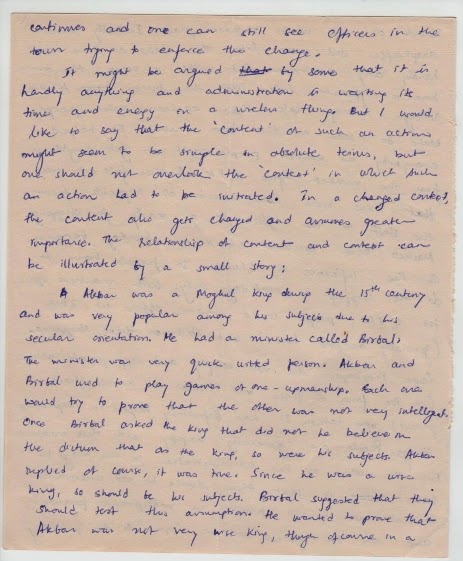 continues and one can still see officers in the
town trying to enforce this change.
It might be argued that by some that it is
hardly anything and administration is wasting its
time and energy in a useless thing. But I would
like to say that the 'content' of such an action
might seem to be simple in absolute terms, but
one should not overlook the 'context' in which such
an action had to be initiated. In a changed context,
the content also gets changed and assumes greater
importance. The relationship of content and context can
be illustrated by a small story:
Akbar was a Moghul king during the 15th century
and was very popular among his subjects due to his
secular orientation. He had a minister called Birbal.
The minister was very quick witted person. Akbar and
Birbal used to play games of one-upmanship. Each one
would try to prove that the other was not very intelligent.
Once Birbal asked the king that did not he believe in
the dictum that as the king, so were his subjects. Akbar
replied of course, it was true. Since he was a wise
king, so should be his subjects. Birbal suggested that they
should test this assumption. He wanted to prove that
Akbar was not very wise king, though of course in a